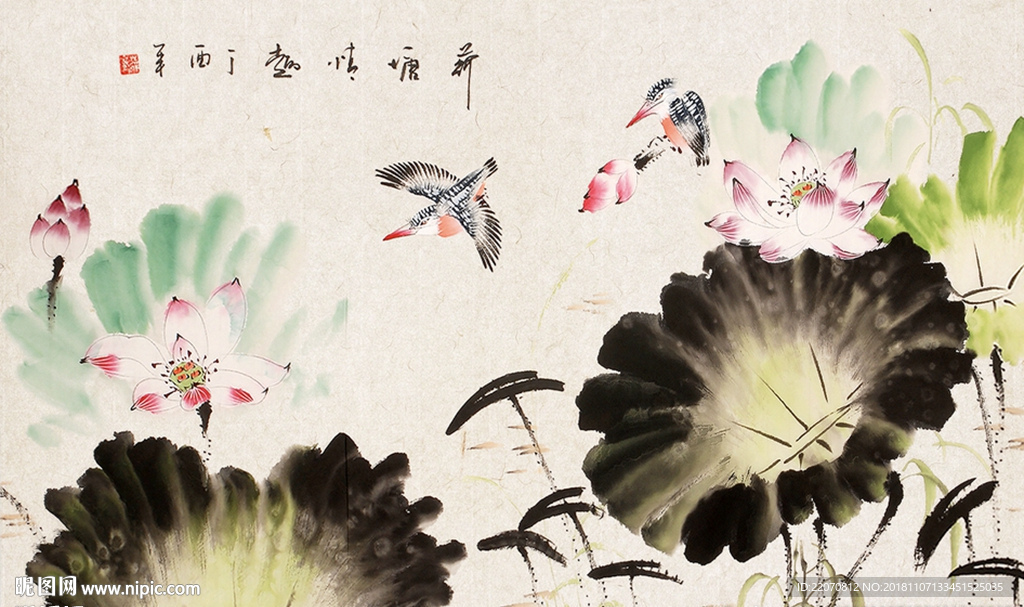 荷塘情趣丁酉年
昵图网 www.nipic.com
ID:22070812 NO:20181107133451525035